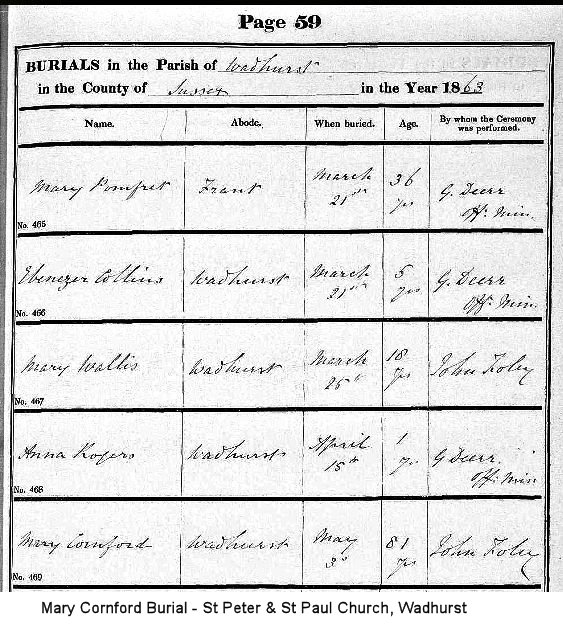 Page 59
BURIALS in the Parish of Wadhurst
in the County of Sussex in the Year 1863
Name. Abode. When buried. Age. By whom the Ceremony was performed.
Mary Pomfret Frant March 21st 36 yrs G. Deerr Off. Min.
No. 465
Ebenezer Collins Wadhurst March 21st 5 yrs G. Deerr Off. Min.
No. 466
Mary Wallis Wadhurst March 25th 18 yrs John Foley
No. 467
Anna Rogers Wadhurst April 15th 1 yr G Deerr Off. Min
No. 468
Mary Cornford Wadhurst May 3d 81 yrs John Foley
No. 469
Mary Cornford Burial - St Peter & St Paul Church, Wadhurst